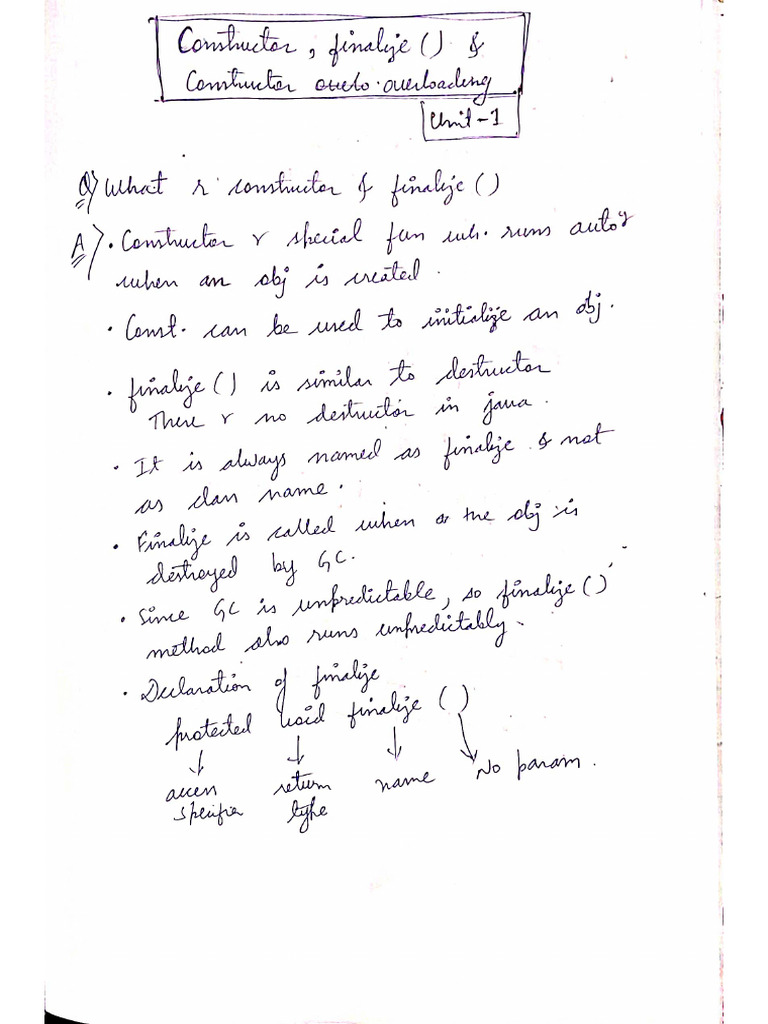 Constructor, finalize() &
Constructor overlo overloading
Unit-1
Q) What r constructor & finalize()
A) • Constructor r special fun wh. runs autoy
when an obj is created.
• Const. can be used to initialize an obj.
• finalize() is similar to destructor
There r no destructor in java.
• It is always named as finalize & not
as class name.
• Finalize is called when the obj is
destroyed by GC.
• Since GC is unpredictable, so finalize()
method also runs unpredictably.
• Declaration of finalize
protected void finalize ()
access return name No param.
specifier type